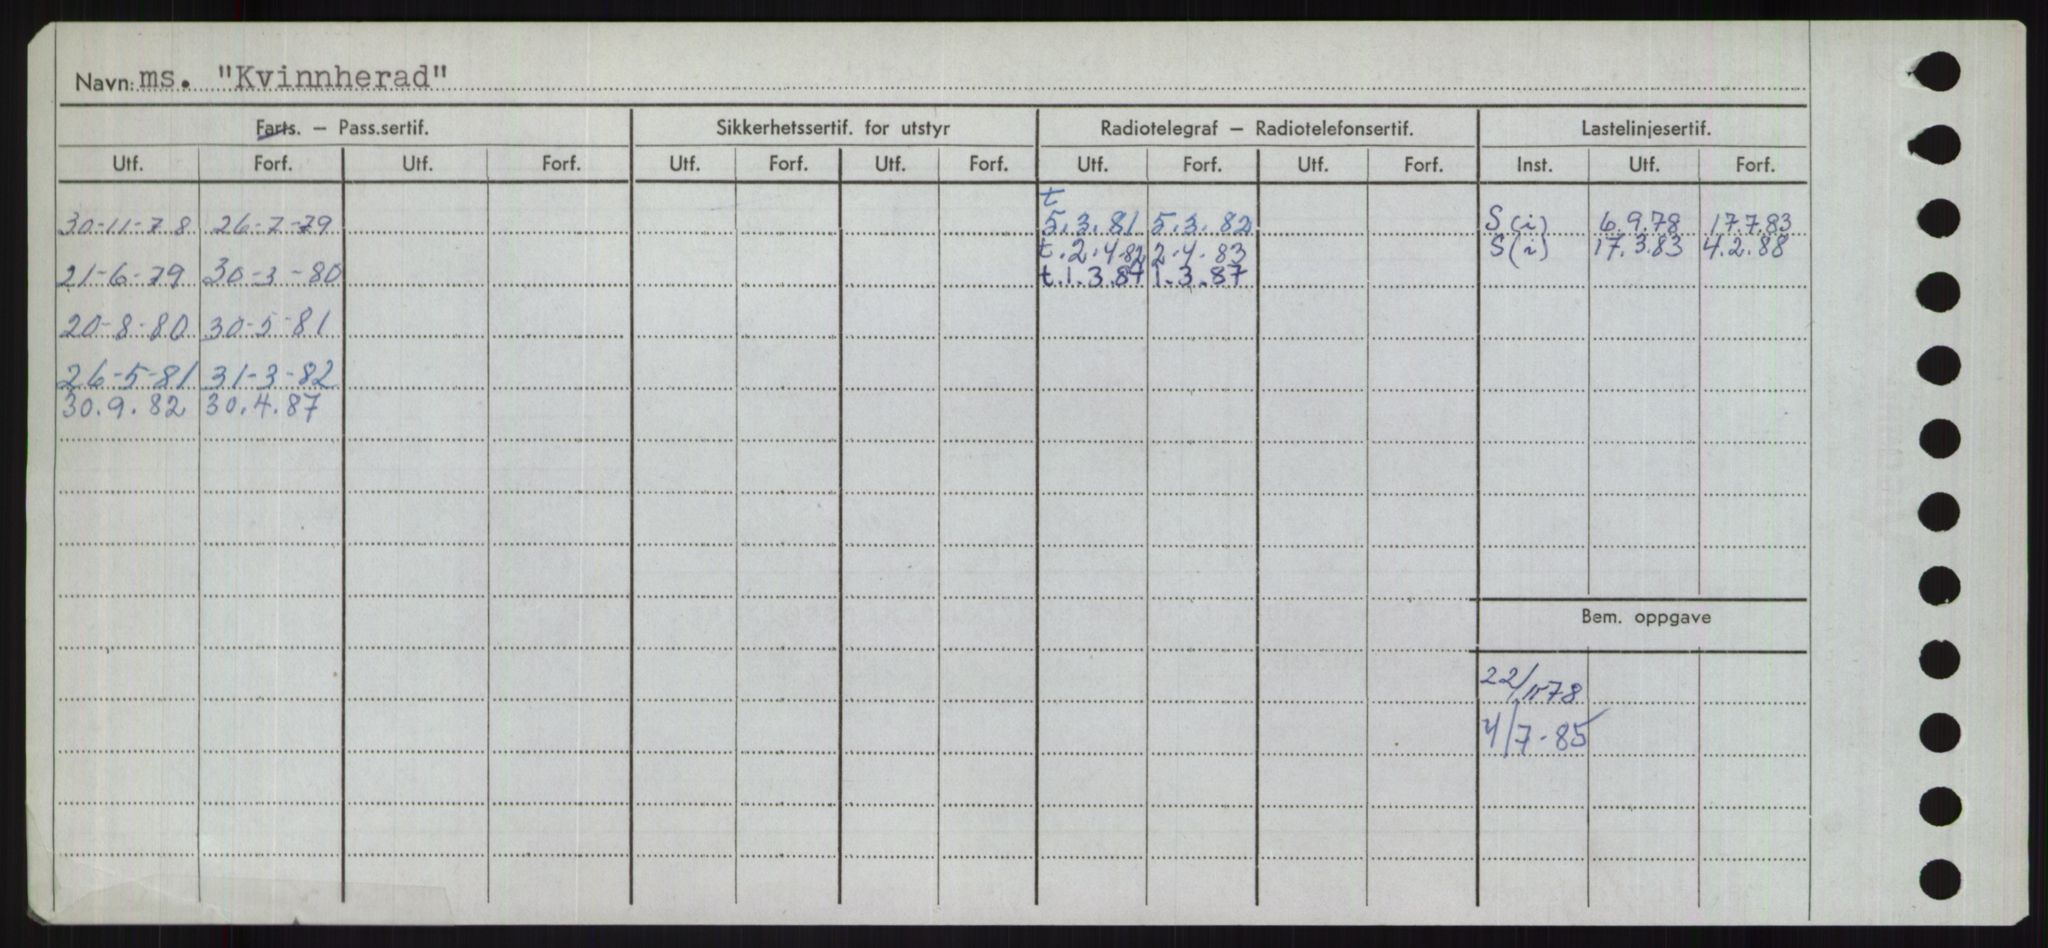 Navn: ms. "Kvinnherad"
Farts. – Pass.sertif. Sikkerhetssertif. for utstyr Radiotelegraf – Radiotelefonsertif. Lastelinjesertif.
Utf. Forf. Utf. Forf. Utf. Forf. Utf. Forf. Utf. Forf. Utf. Forf. Inst. Utf. Forf.
t
30-11-78 26-7-79 5.3.81 5.3.82 S(i) 6.9.78 17.7.83
t.2.4.82 2.4.83 S(i) 17.3.83 4.2.88
21-6-79 30-3-80 t.1.3.87 1.3.87
20-8-80 30-5-81
26-5-81 31-3-82
30.9.82 30.4.87
Bem. oppgave
4/7-85